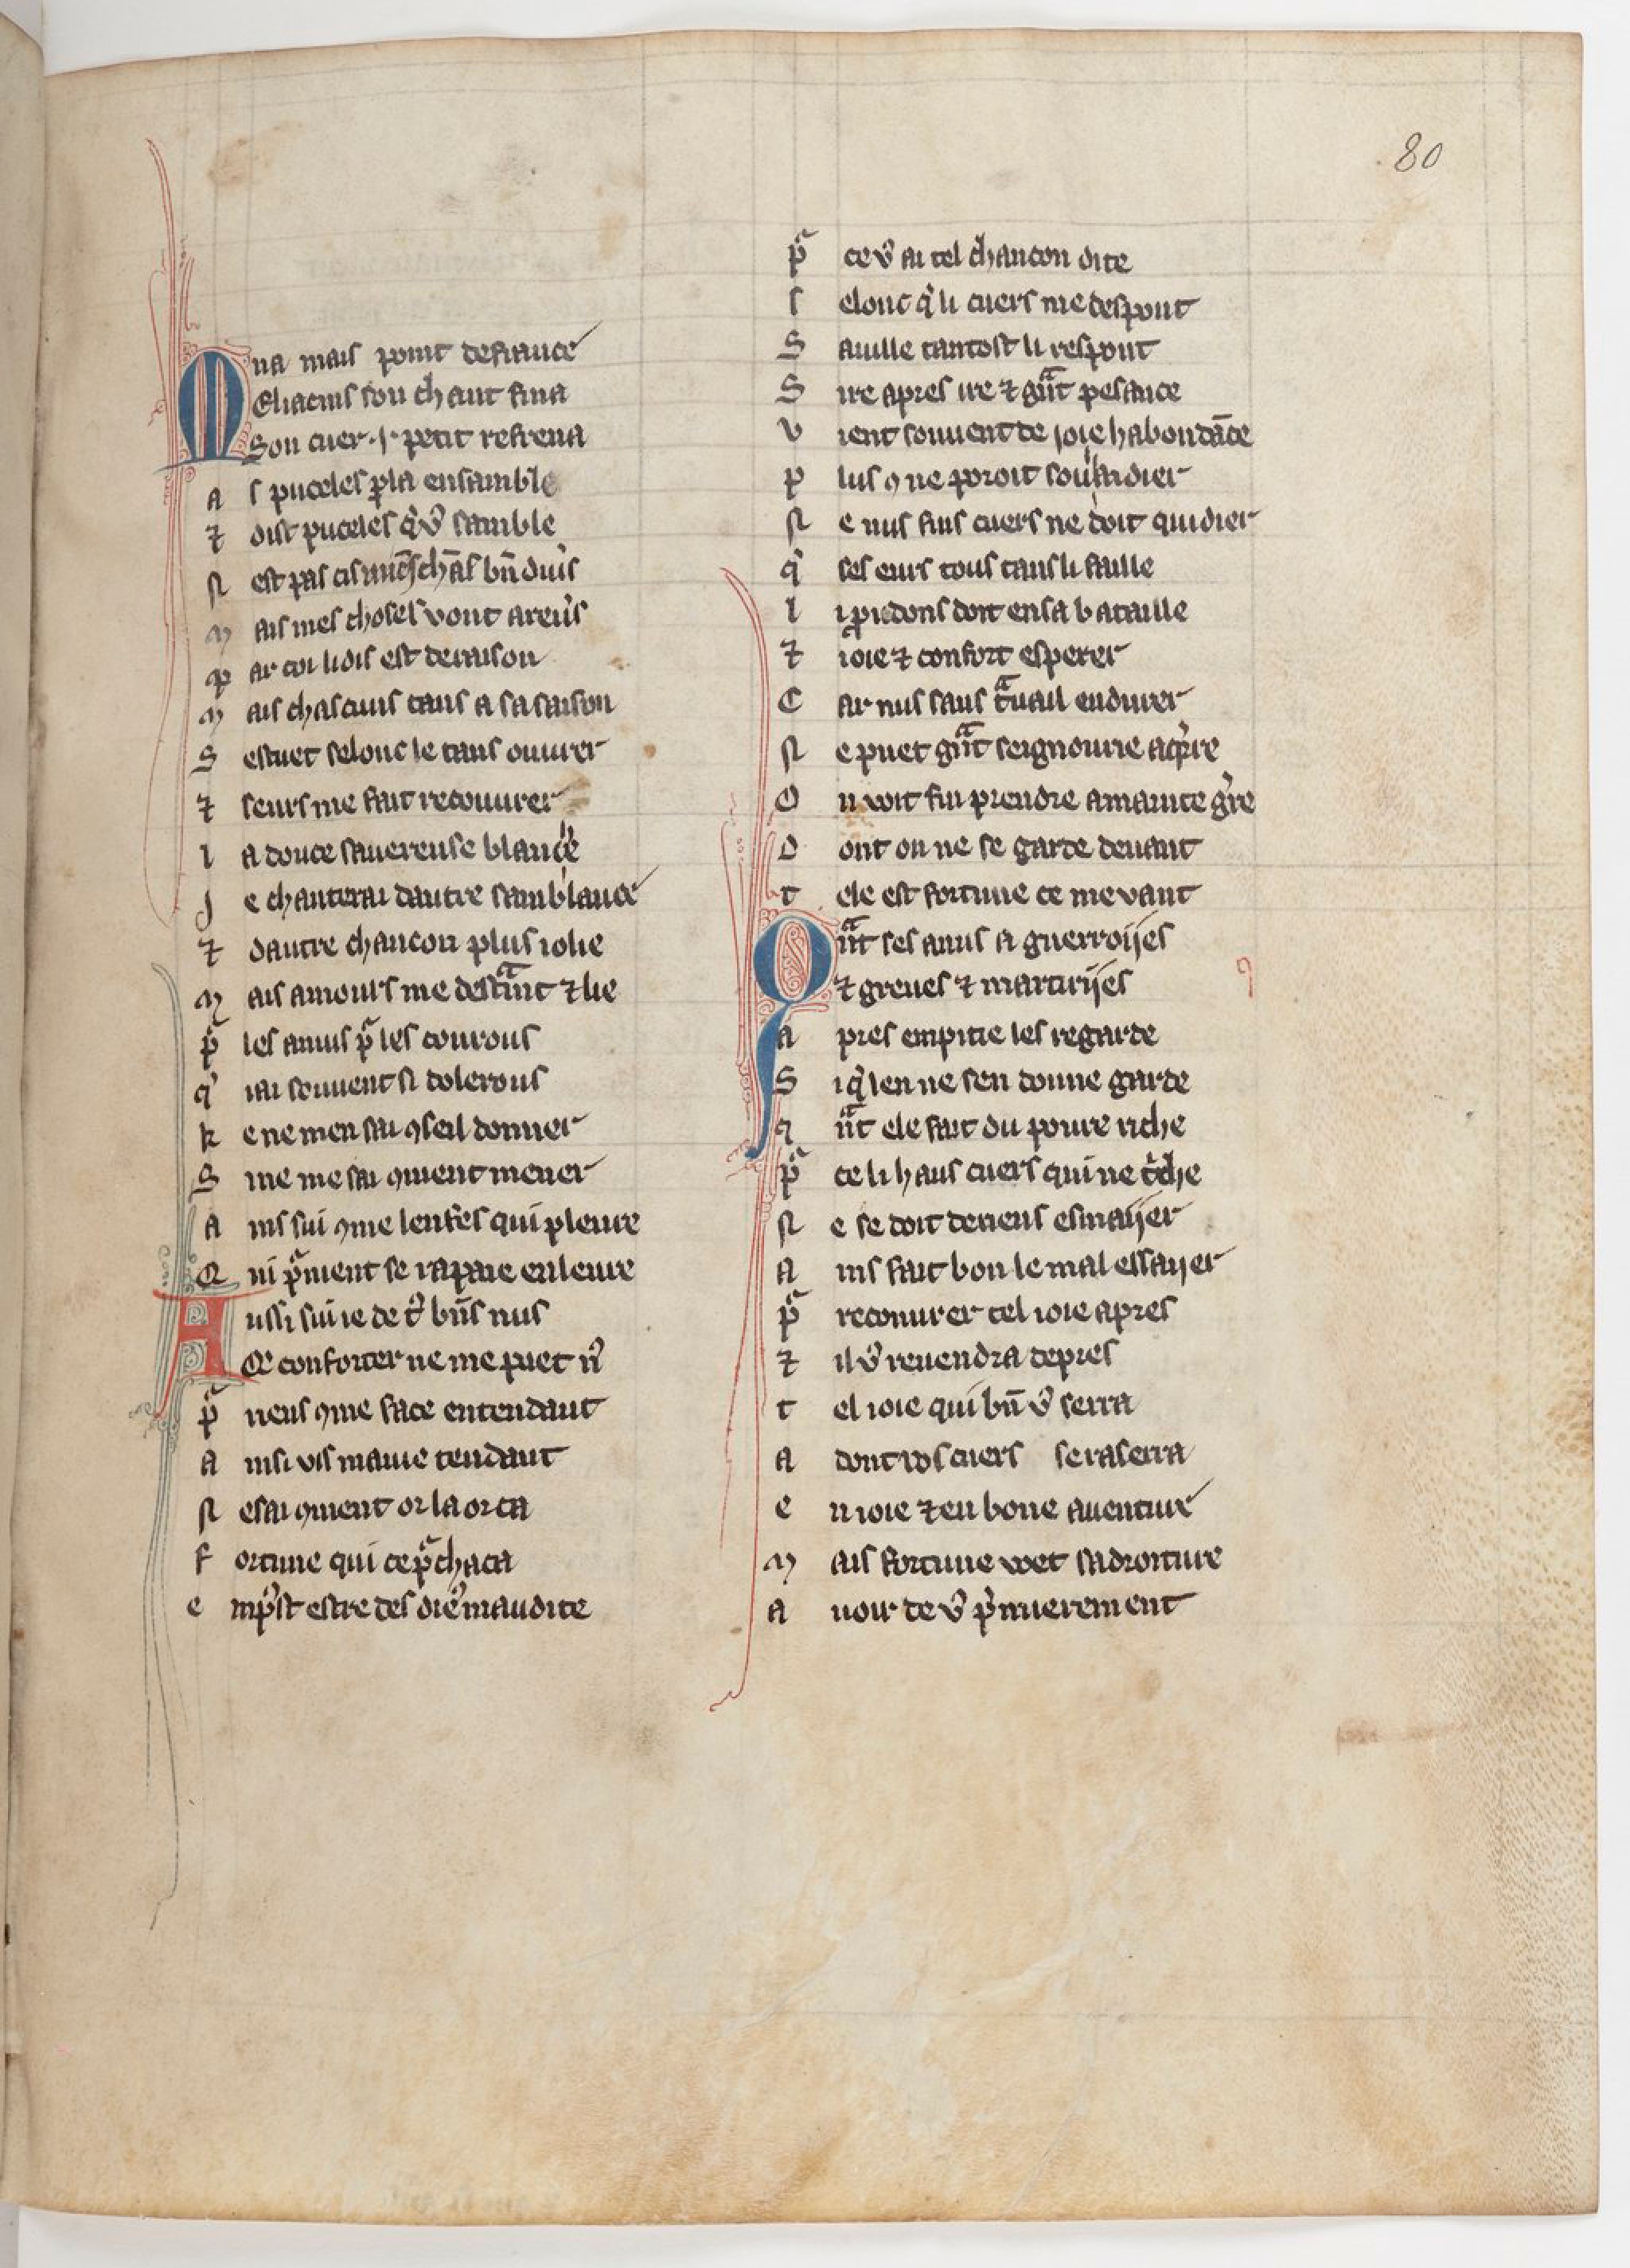 80
Ona mais point de fiance
Meliacins son chant fina
Son cuer .i. petit refrena
As puceles pla ensamble
⁊ dist puceles q̇ v᷒ samble
N est pas cis bn̄ diuis
Mais mes choses vont areuis
Par coi li dis est de raison
Mais chascuns tans a sa saison
Sestuet selonc le tans ouurer
⁊ seurs me fait recouurer
La douce sauereuse blance
Je chanterai dautre samblance
⁊ dautre chancon plus iolie
Mais amours me destᵃint ⁊ lie
pᵃ les anuis pᵃ les courous
qⁱ iai souuent si dolerous
Ke ne men sai ꝯseil donner
Sine me sai ꝯment mener
Ains sui ꝯme lenfes qui pleure
Qui pᵃ nient se rapaie en leure
Aussi sui ie de tͦ bn̄s nus
Qe conforter ne me puet nͧ
pᵃ riens ꝯme face entendant
Ainsi vis mauie tendant
Ne sai ꝯment or la or ca
Fortune qui ce pᵃchaca
Empͥst estre des diex maudite
pᵃ ce v᷒ ai tel chancon dite
Selonc qͥ li cuers me despont
Sauille tantost li respont
Sire apres ire ⁊ gn̄ᵃt pesance
Vient souuent de ioie habondāce
Plus ꝯ ne poroit souhaidier
Ne nus fins cuers ne doit quidier
qͥ ses eurs tous tans li faille
Li pᵒudons doit en sa bataille
⁊ ioie ⁊ confort esperer
Car nus sans tᵃuail endurer
Ne puet gn̄ᵃt seignourie aqͥrre
On voit fin prendre amainte gͥre
Dont on ne se garde deuant
Tele est fortune ce me vant
Qn̄ᵃt ses amis a guerroijes
⁊ greues ⁊ martirijes
Apres em pitie les regarde
Si qͥ len ne sen donne garde
qn̄ᵃt ele fait du poure riche
pᵃ ce li haus cuers qui ne tͥche
Ne se doit de riens esmaijer
Ains fait bon le mal essayer
pᵃ recouurer tel ioie apres
⁊ il v᷒ reuendra de pres
Tel ioie qui bn̄ v᷒ serra
Adont vos cuers se raserra
En ioie ⁊ en bone auenture
Mais fortune voet sa droiture
Auoir de v᷒ pͥmierement